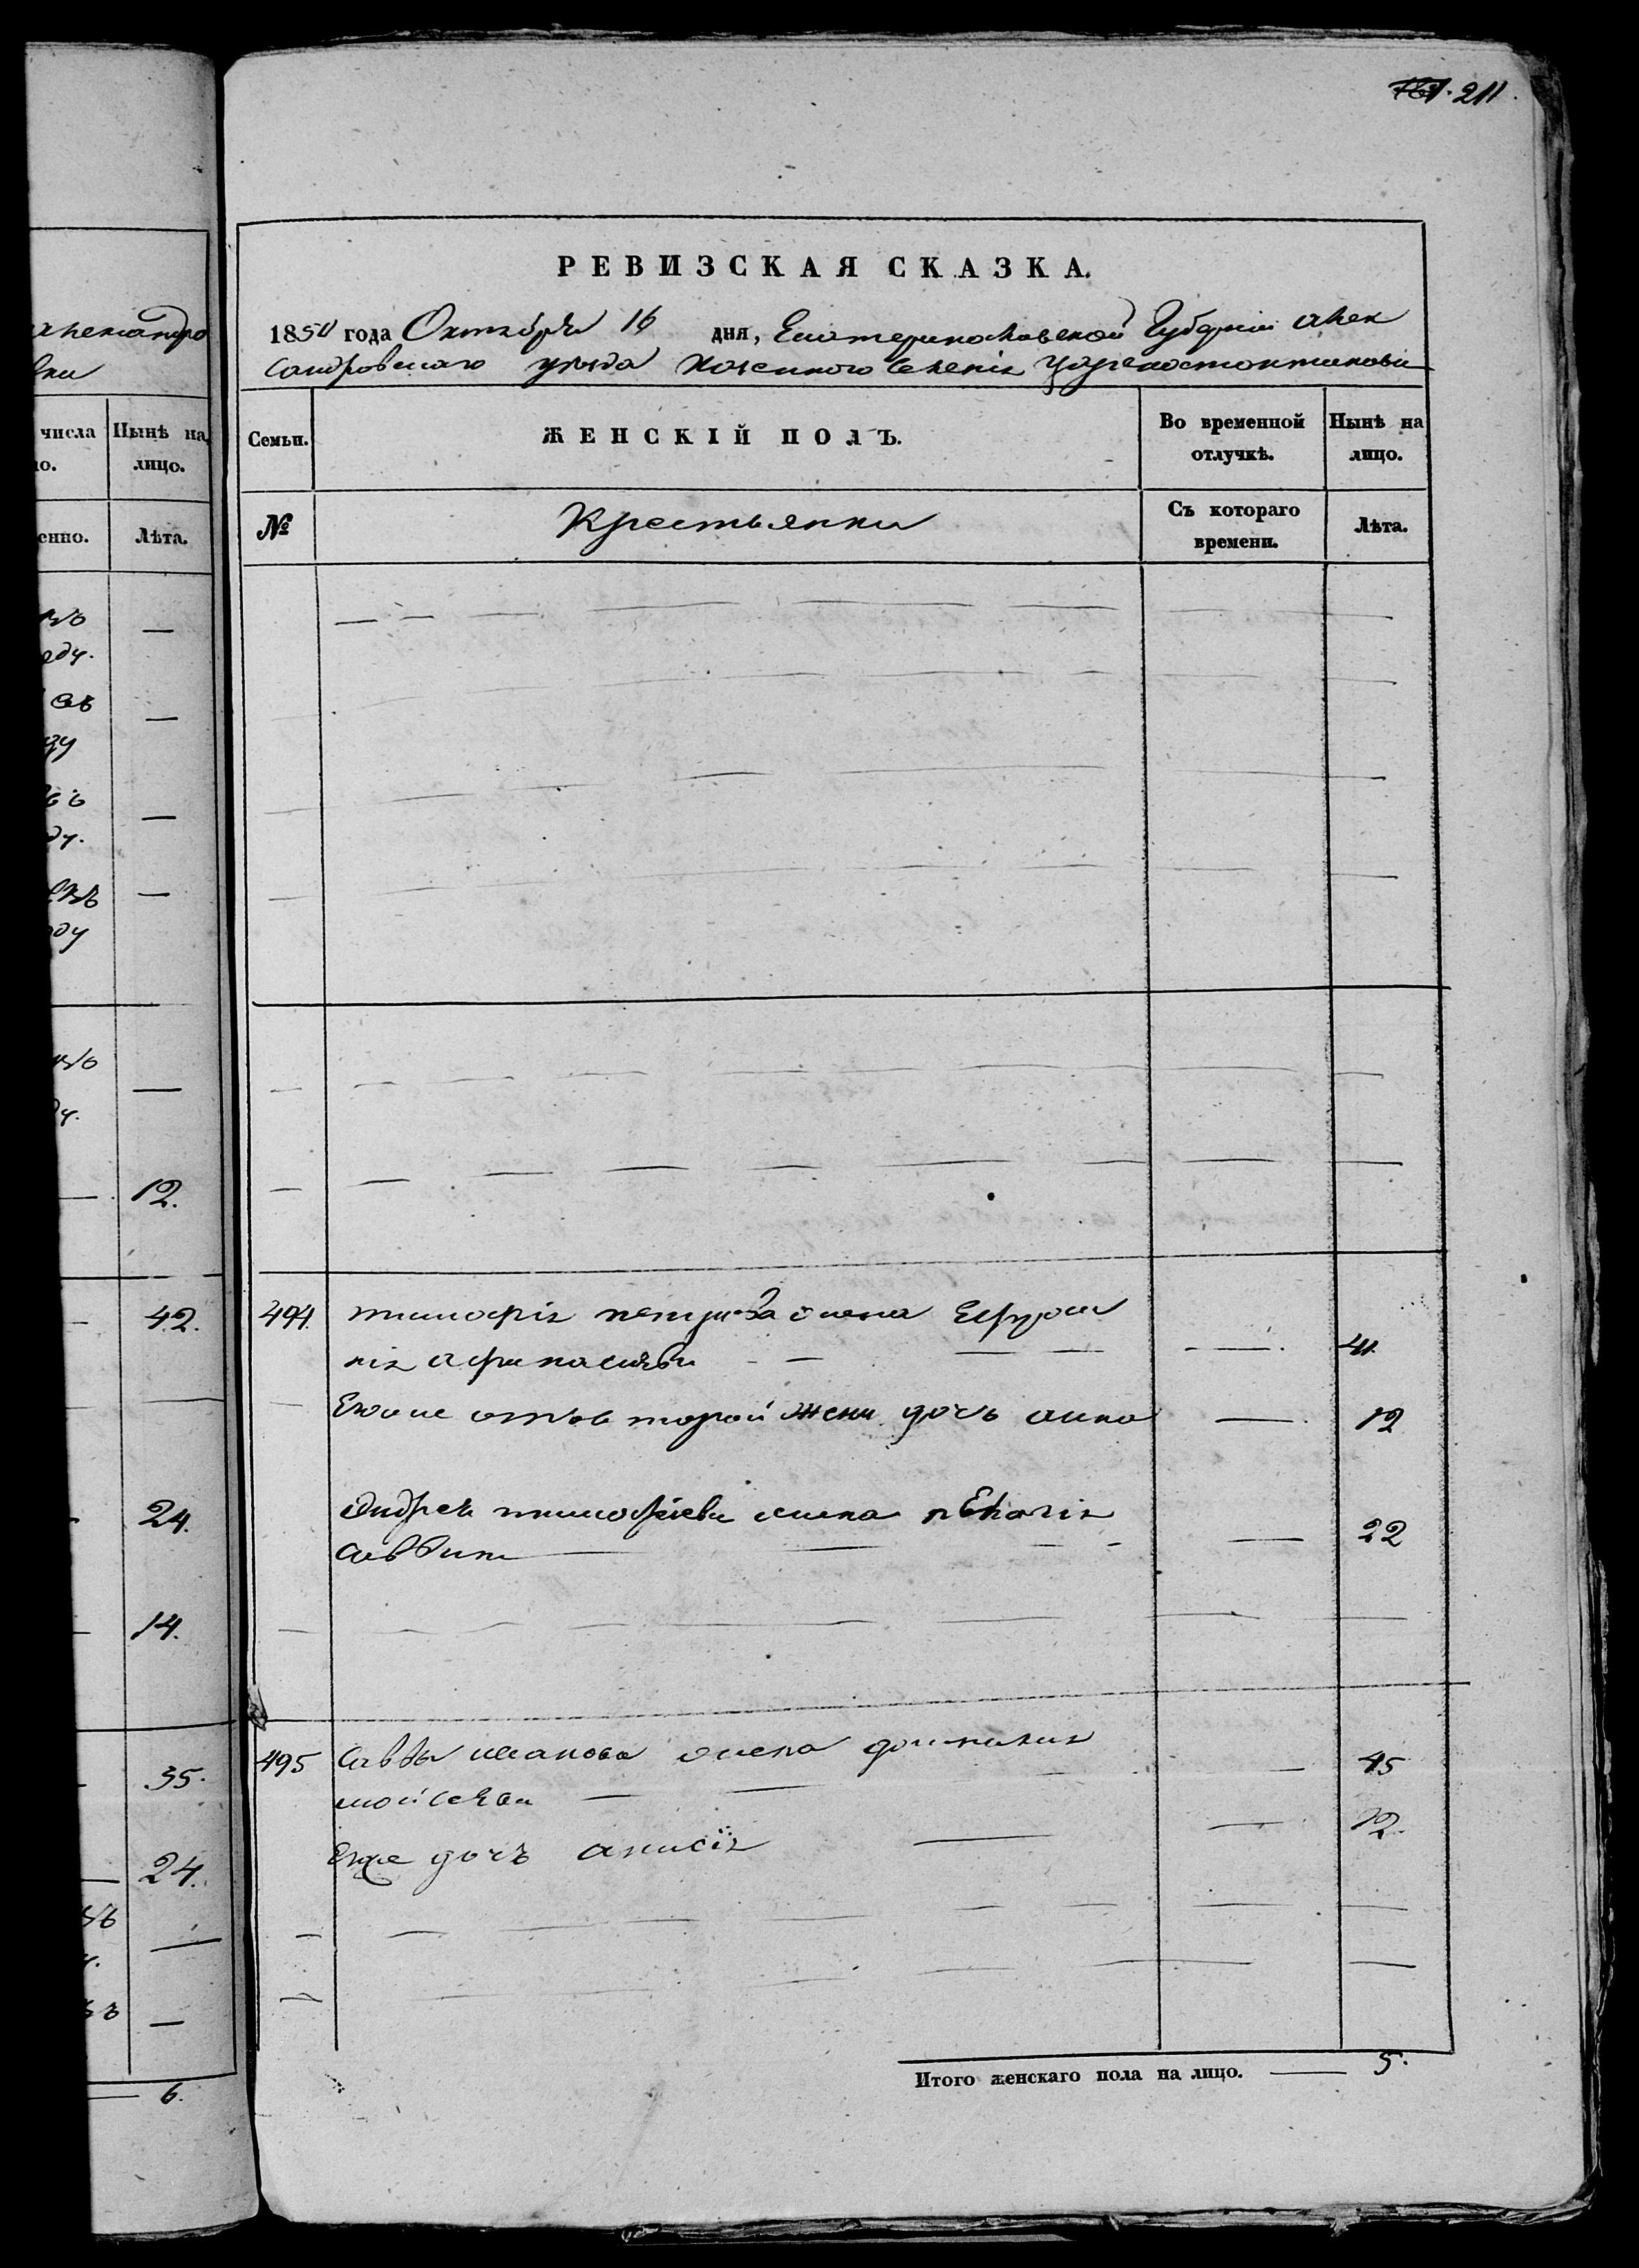 211.
РЕВИЗСКАЯ СКАЗКА.
1850 года Октября 16 дня, Екатеринославской Губерніи Алек
сандровскаго уезда казенного селенія Цареконстонтиновки
Семьи. ЖЕНСКІЙ ПОЛЪ. Во временной отлучкѣ. Нынѣ на лицо.
№ Крестьянки Съ котораго времени. Лѣта.
494. тимофія петрова жена Ефроси
нія афанасиева 41.
Егоже отъ в торой жени дочь анна 12
Андрея тимофиева жена пелагія
саввина 22
495 Саввы иванова жена домникия
мойсеева 45
Егоже дочъ анисія 12.
Итого женскаго пола на лицо. 5.
числа Нынѣ на
лицо.
Лѣта.
12.
42.
24.
14.
35.
24.
6.